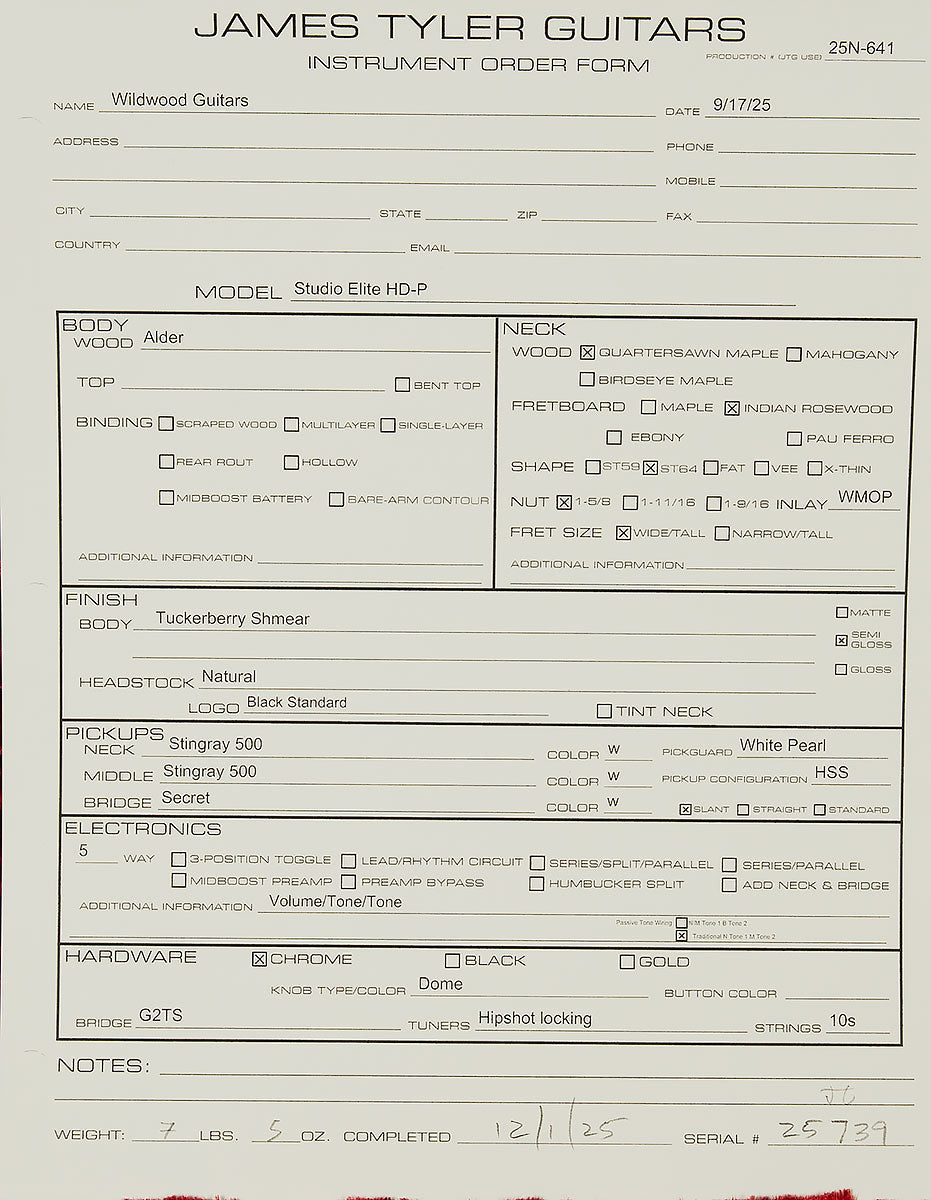 JAMES TYLER GUITARS
INSTRUMENT ORDER FORM
PRODUCTION # (JTG USE) 25N-641
NAME Wildwood Guitars DATE 9/17/25
ADDRESS PHONE
MOBILE
CITY STATE ZIP FAX
COUNTRY EMAIL
MODEL Studio Elite HD-P
BODY
WOOD Alder
TOP BENT TOP
BINDING SCRAPED WOOD MULTILAYER SINGLE-LAYER
REAR ROUT HOLLOW
MIDBOOST BATTERY BARE-ARM CONTOUR
ADDITIONAL INFORMATION
NECK
WOOD ☒ QUARTERSAWN MAPLE ☐ MAHOGANY
☐ BIRDSEYE MAPLE
FRETBOARD ☐ MAPLE ☒ INDIAN ROSEWOOD
☐ EBONY ☐ PAU FERRO
SHAPE ☐ ST59 ☒ ST64 ☐ FAT ☐ VEE ☐ X-THIN
NUT ☒ 1-5/8 ☐ 1-11/16 ☐ 1-9/16 INLAY WMOP
FRET SIZE ☒ WIDE/TALL ☐ NARROW/TALL
ADDITIONAL INFORMATION
FINISH
BODY Tuckerberry Shmear
☐ MATTE
☒ SEMI GLOSS
☐ GLOSS
HEADSTOCK Natural
LOGO Black Standard ☐ TINT NECK
PICKUPS
NECK Stingray 500 COLOR W PICKGUARD White Pearl
MIDDLE Stingray 500 COLOR W PICKUP CONFIGURATION HSS
BRIDGE Secret COLOR W ☒ SLANT ☐ STRAIGHT ☐ STANDARD
ELECTRONICS
5 WAY ☐ 3-POSITION TOGGLE ☐ LEAD/RHYTHM CIRCUIT ☐ SERIES/SPLIT/PARALLEL ☐ SERIES/PARALLEL
☐ MIDBOOST PREAMP ☐ PREAMP BYPASS ☐ HUMBUCKER SPLIT ☐ ADD NECK & BRIDGE
ADDITIONAL INFORMATION Volume/Tone/Tone
Passive Tone Wiring ☐ N M Tone 1 B Tone 2
☒ Traditional N Tone 1 M Tone 2
HARDWARE ☒ CHROME ☐ BLACK ☐ GOLD
KNOB TYPE/COLOR Dome BUTTON COLOR
BRIDGE G2TS TUNERS Hipshot locking STRINGS 10s
NOTES:
WEIGHT: 7 LBS. 5 OZ. COMPLETED 12/1/25 SERIAL # 25739